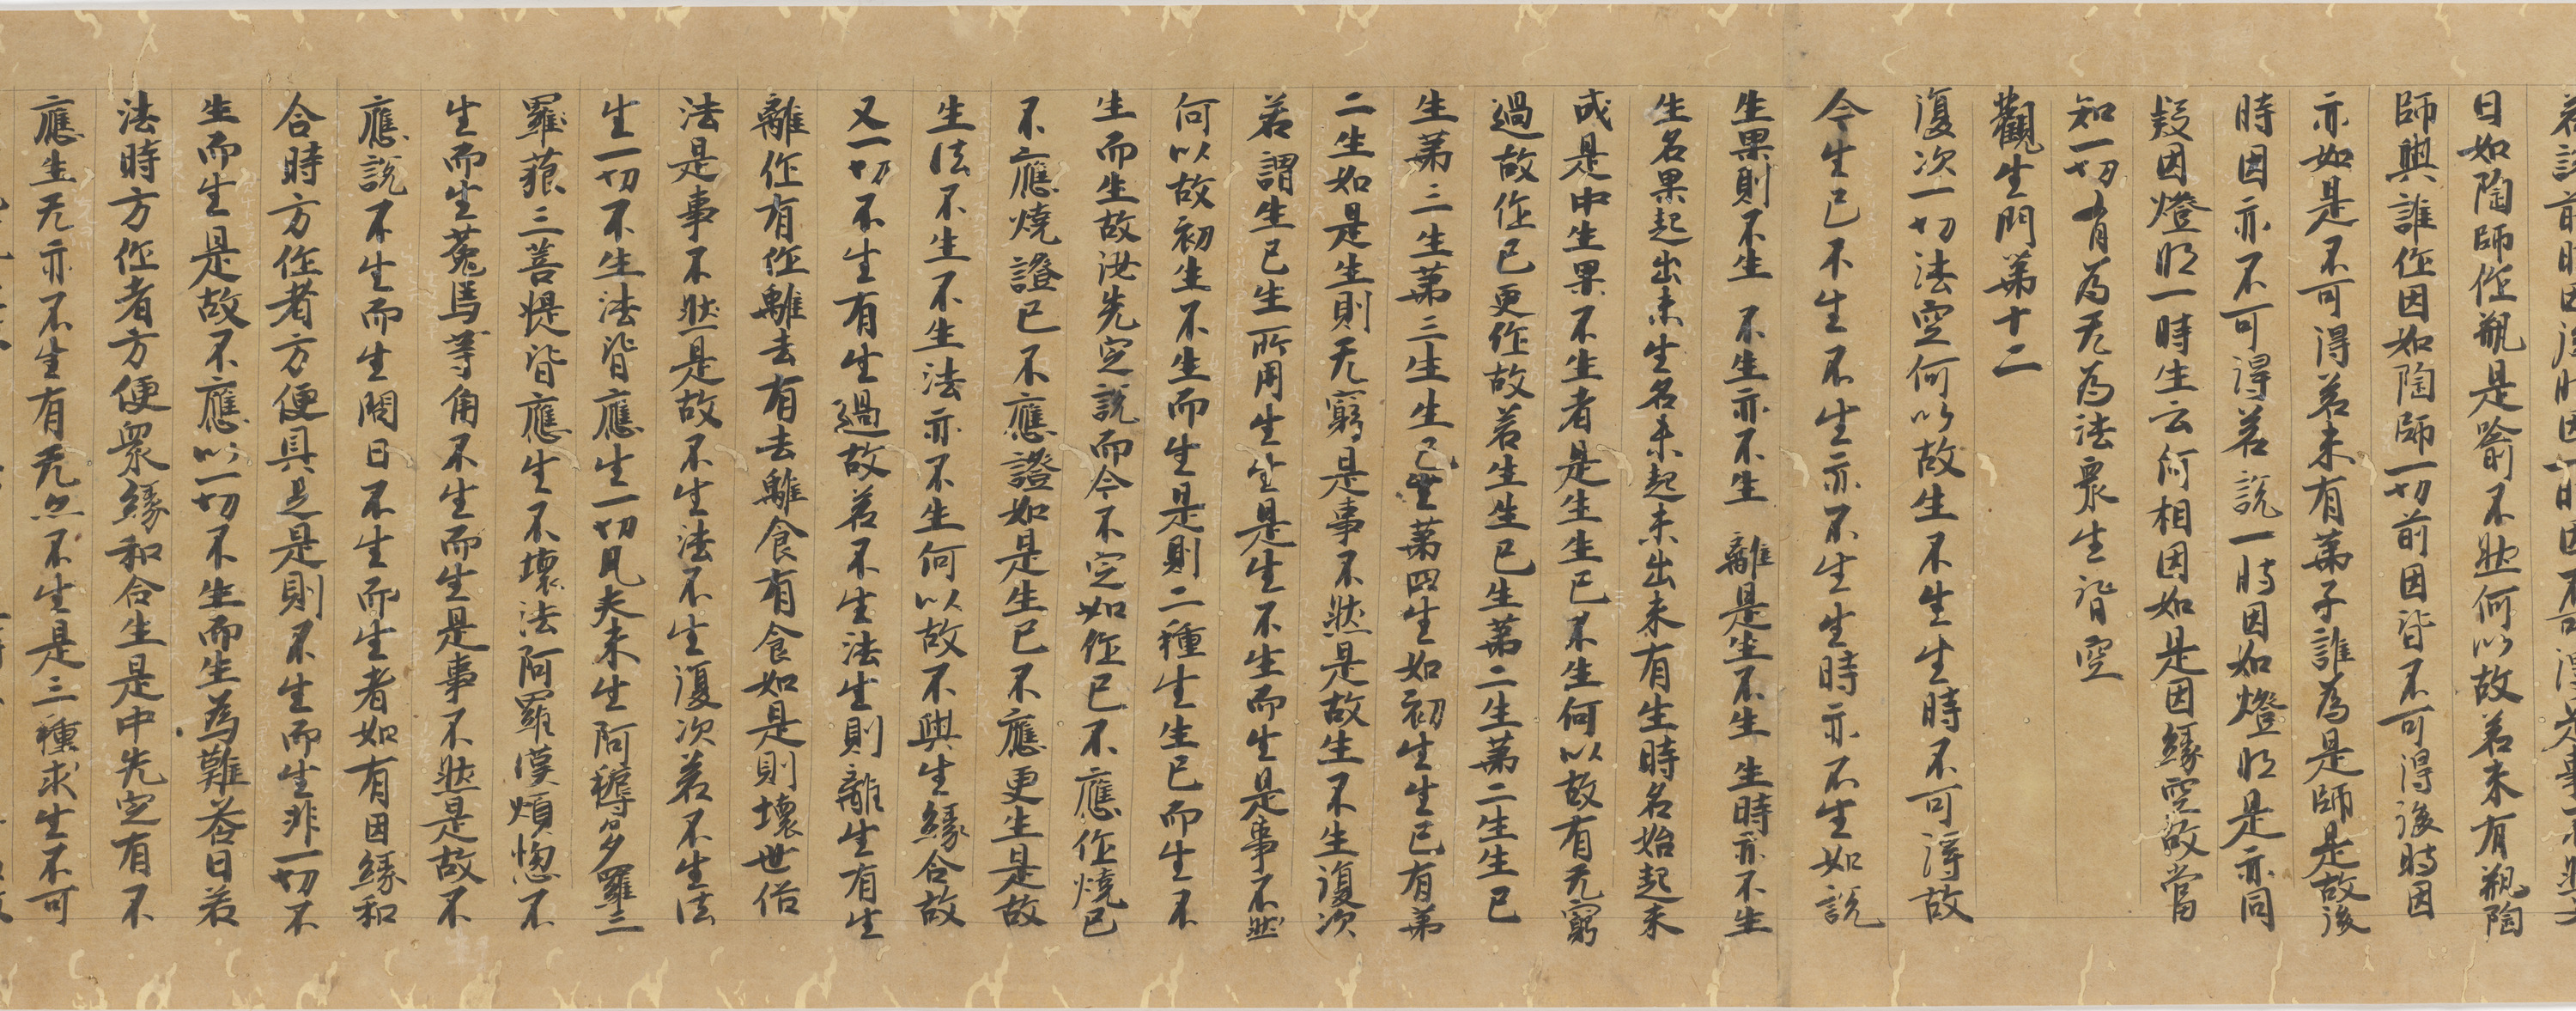 若說前時因後時因一時因不可得是事不然
曰如陶師作瓶是喻不然何以故若未有瓶陶
師與誰作因如陶師一切前因皆不可得後時因
亦如是不可得若未有弟子誰為是師是故後
時因亦不可得若說一時因如燈明是亦同
疑因燈明一時生云何相因如是因緣空故當
知一切有為无為法眾生皆空
觀生門第十二
復次一切法空何以故生不生生時不可得故
今生已不生不生亦不生生時亦不生如說
生果則不生 不生亦不生 離是生不生 生時亦不生
生名果起出未生名未起未出未有生時名始起未
成是中生果不生者是生生已不生何以故有无窮
過故作已更作故若生生已生第二生第二生生已
生第三生第三生生已生第四生如初生生已有第
二生如是生則无窮是事不然是故生不生復次
若謂生已生所用生生是生不生而生是事不然
何以故初生不生而生是則二種生生已而生不
生而生故汝先定說而今不定如作已不應作燒已
不應燒證已不應證如是生已不應更生是故
生法不生不生法亦不生何以故不與生緣合故
又一切不生有生過故若不生法生則離生有生
離作有作離去有去離食有食如是則壞世俗
法是事不然是故不生法不生復次若不生法
生一切不生法皆應生一切凡夫未生阿耨多羅三
羅藐三菩提皆應生不壞法阿羅漢煩惱不
生而生菟馬等角不生而生是事不然是故不
應說不生而生問曰不生而生者如有因緣和
合時方作者方便具足是則不生而生非一切不
生而生是故不應以一切不生而生為難答曰若
法時方作者方便眾緣和合生是中先定有不
應生无亦不生有无亦不生是三種求生不可